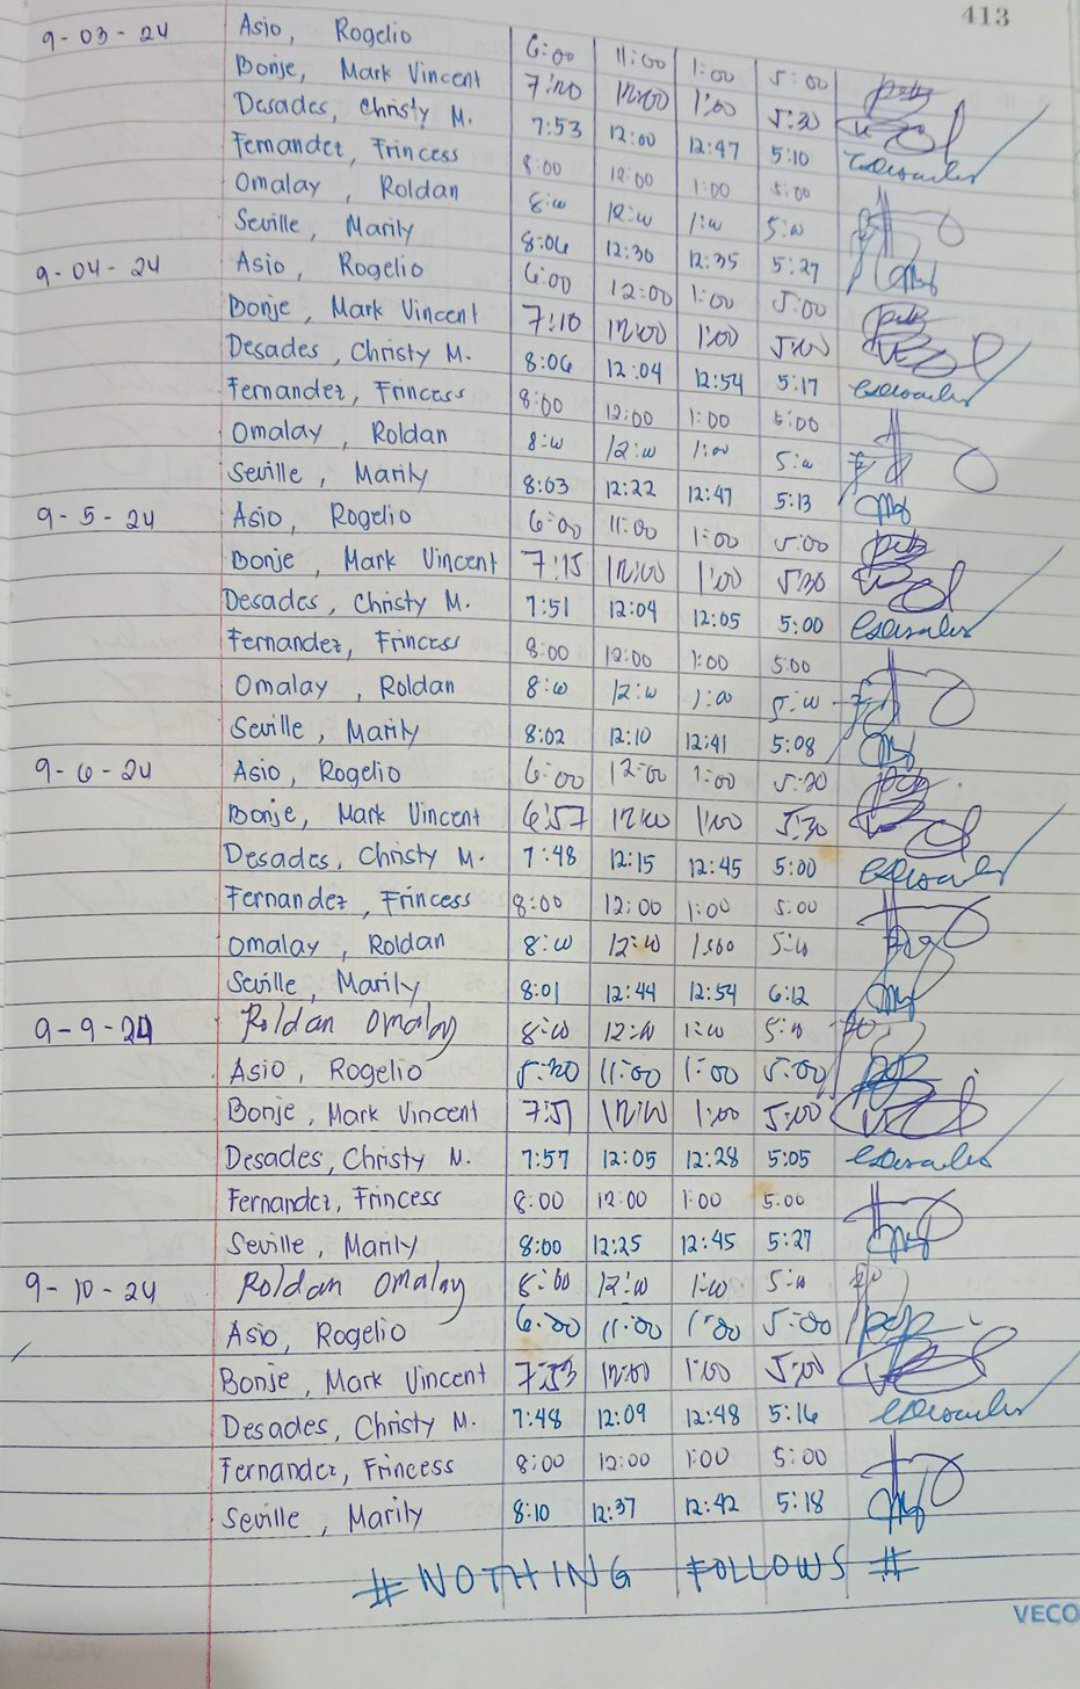 413
9-03-24 Asio, Rogelio 6:00 11:00 1:00 5:00
Bonje, Mark Vincent 7:20 12:00 1:00 5:30
Desades, Christy M. 7:53 12:00 12:47 5:10
Fernandez, Frincess 8:00 12:00 1:00 5:00
Omalay, Roldan 8:00 12:00 1:00 5:00
Seville, Marily 8:06 12:30 12:35 5:27
9-04-24 Asio, Rogelio 6:00 12:00 1:00 5:00
Bonje, Mark Vincent 7:10 12:00 1:00 5:00
Desades, Christy M. 8:06 12:04 12:54 5:17
Fernandez, Frincess 8:00 12:00 1:00 5:00
Omalay, Roldan 8:00 12:00 1:00 5:00
Seville, Marily 8:03 12:22 12:47 5:13
9-5-24 Asio, Rogelio 6:00 11:00 1:00 5:00
Bonje, Mark Vincent 7:15 12:00 1:00 5:30
Desades, Christy M. 7:51 12:04 12:05 5:00
Fernandez, Frincess 8:00 12:00 1:00 5:00
Omalay, Roldan 8:00 12:00 1:00 5:00
Seville, Marily 8:02 12:10 12:41 5:08
9-6-24 Asio, Rogelio 6:00 12:00 1:00
Bonje, Mark Vincent 6:57 12:00 1:00 5:30
Desades, Christy M. 7:48 12:15 12:45 5:00
Fernandez, Frincess 8:00 12:00 1:00 5:00
Omalay, Roldan 8:00 12:00 1:00 5:00
Seville, Marily 8:01 12:44 12:54 6:12
9-9-24 Roldan Omalay 8:00 12:00 1:00 5:00
Asio, Rogelio 11:00 1:00 5:00
Bonje, Mark Vincent 7:51 12:00 1:00 5:00
Desades, Christy M. 7:57 12:05 12:28 5:05
Fernandez, Frincess 8:00 12:00 1:00 5:00
Seville, Marily 8:00 12:25 12:45 5:27
9-10-24 Roldan Omalay 8:00 12:00 1:00 5:00
Asio, Rogelio 6:00 11:00 1:00 5:00
Bonje, Mark Vincent 7:53 12:00 1:00 5:00
Desades, Christy M. 7:48 12:09 12:48 5:16
Fernandez, Frincess 8:00 12:00 1:00 5:00
Seville, Marily 8:10 12:37 12:42 5:18
# NOTHING FOLLOWS #
VECO